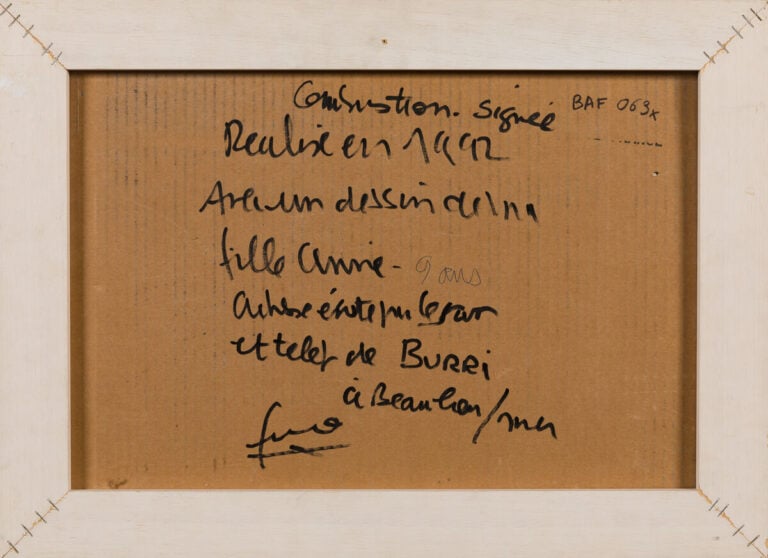 Combustion. Signée BAF 063x
Realisé en 1992
Avec un dessin de ma
fille Annie - 9 ans
Adresse écrite par
et telef de BURRI
à Beaulieu/mer